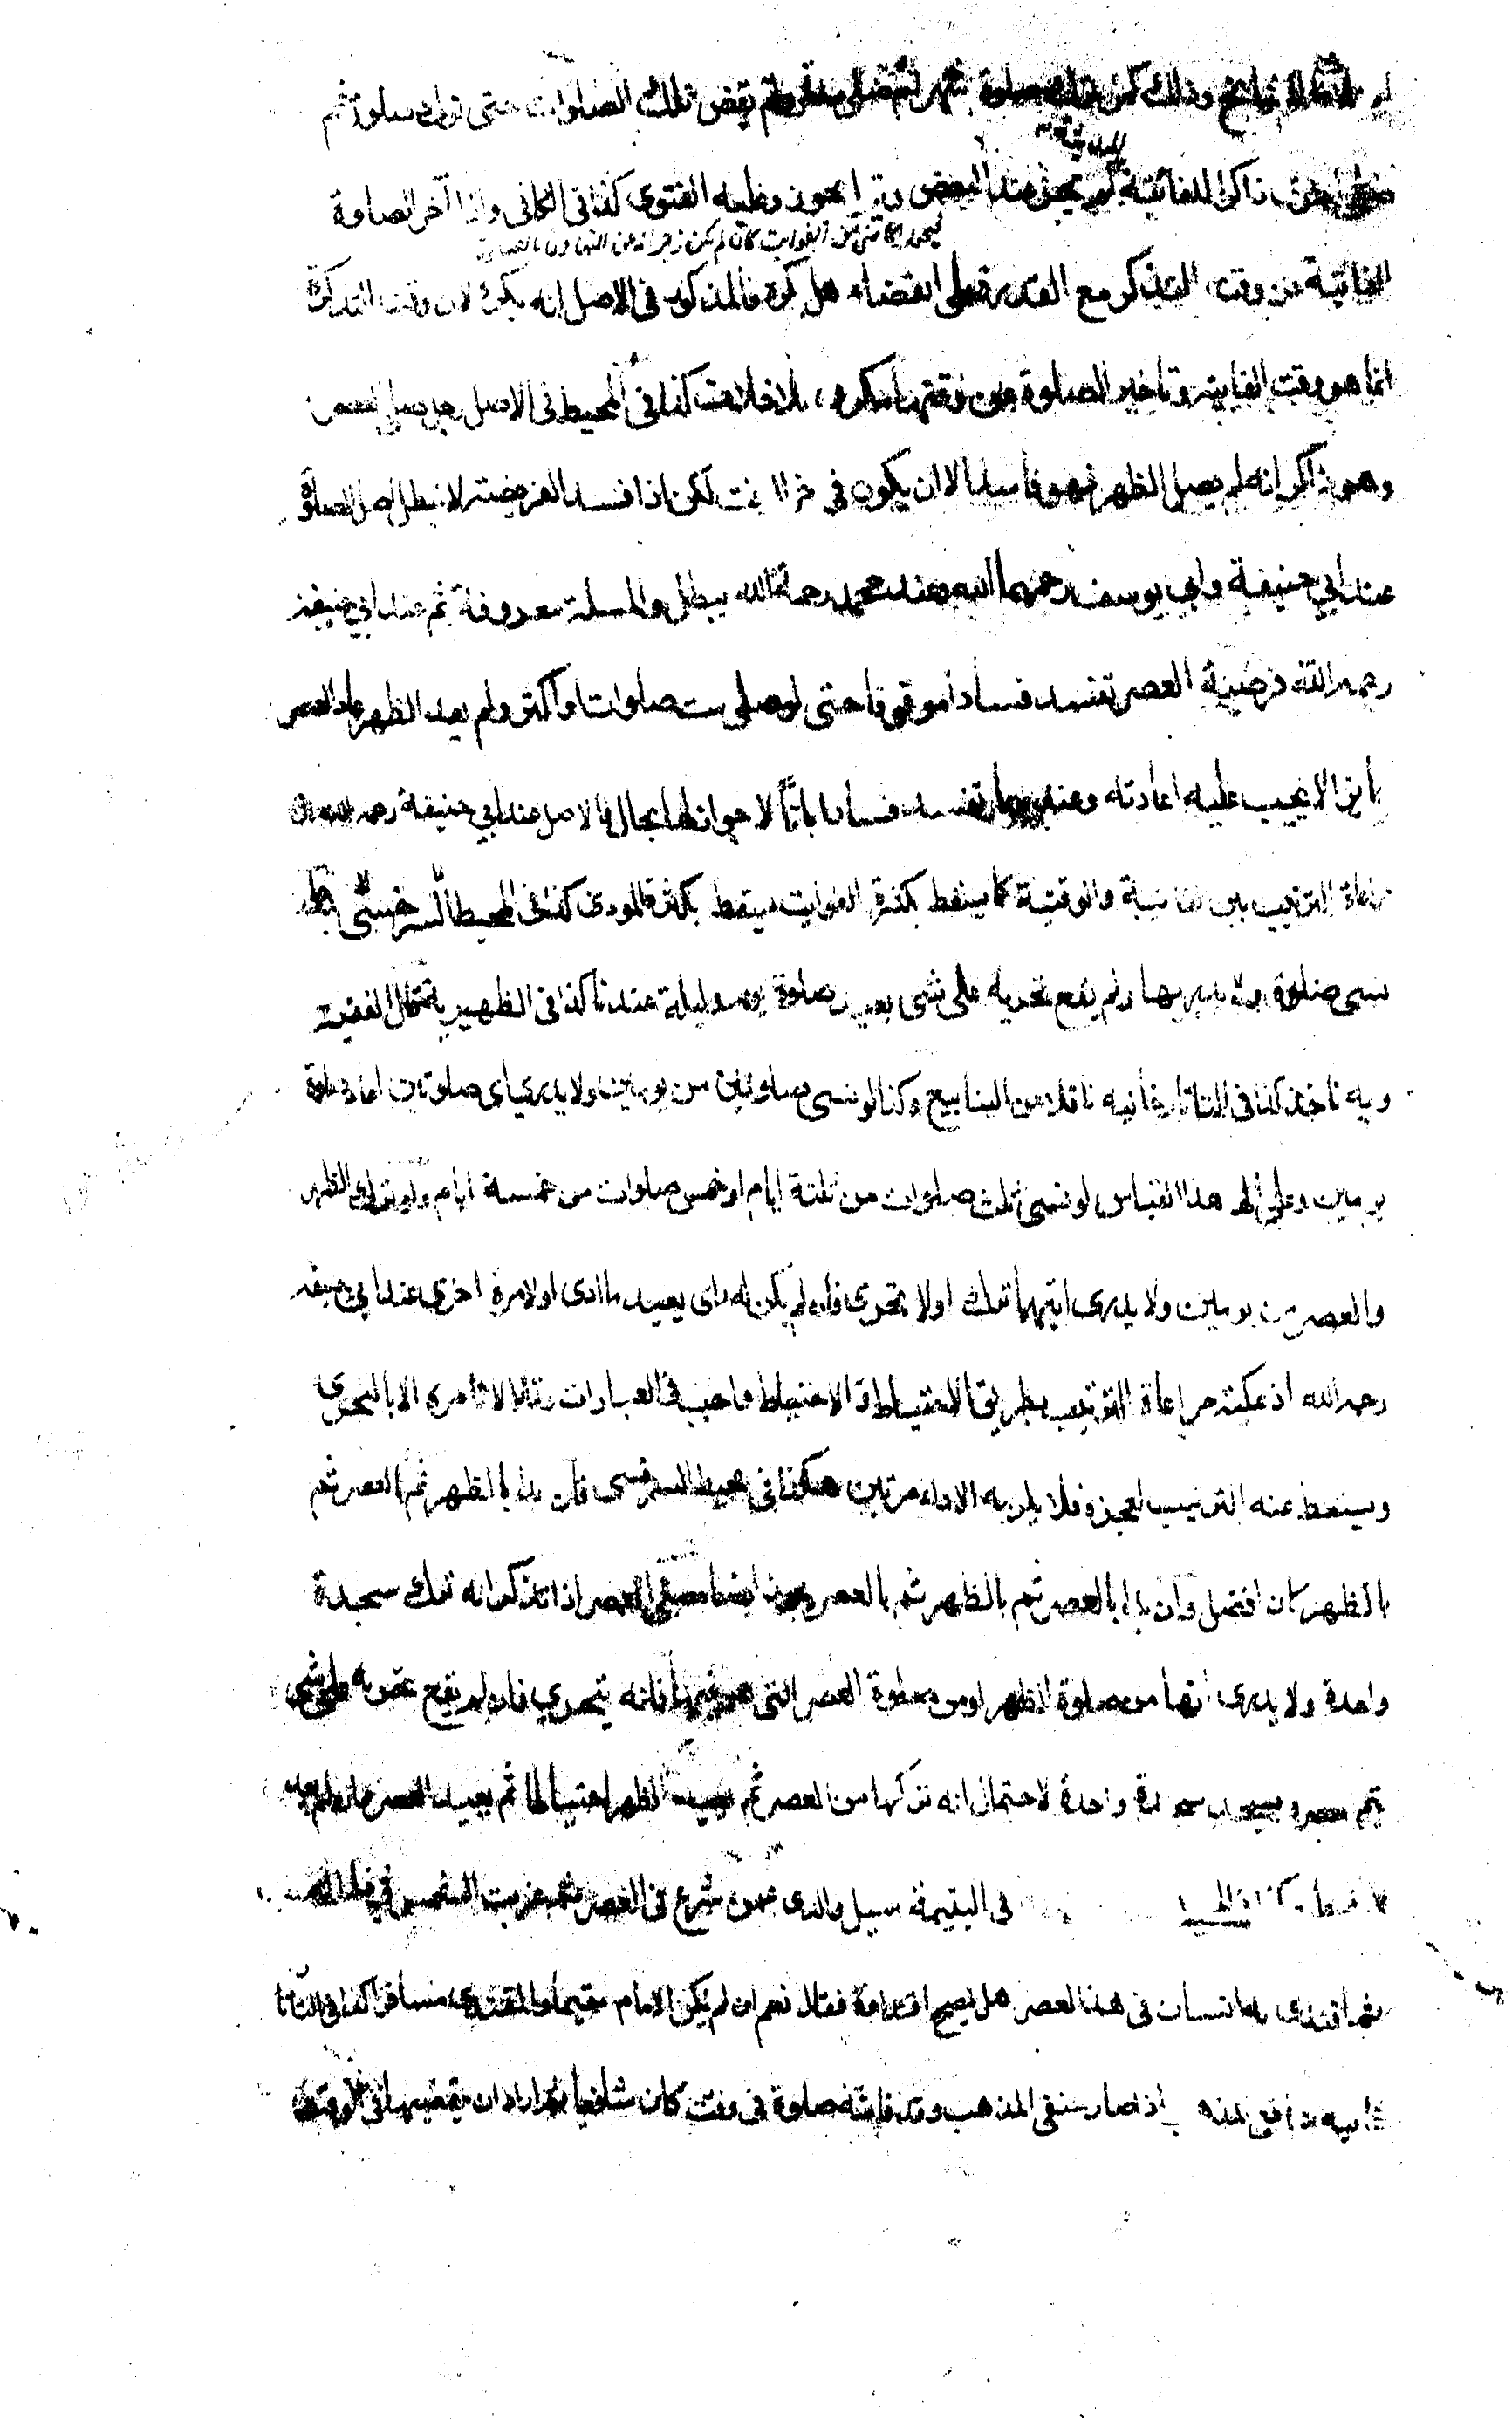 وذلك كمن ترك صلوة شهر ثم صلى مدة ولم يقض تلك الصلوات حتى ترك صلوة ثم
صلى اخرى ذاكرا للفائتة لم يجز عند البعض وقيل يجوز وعليه الفتوى كذا فى الكافى واذا آخر الصلوة
الفائتة عن وقت التذكر مع القدرة على القضاء هل يكره فالمذكور فى الاصل انه يكره لان وقت التذكر
انما هو وقت الفايتة وتأخير الصلوة عن وقتها مكروه بلا خلاف كذا فى المحيط فى الاصل رجل يصلى العصر
وهو ذاكر انه لم يصل الظهر فهو فاسد الا ان يكون فى آخر الوقت لكن اذا فسد الفريضة لا يبطل اصل الصلوة
عند ابي حنيفة وابي يوسف رحمهما الله وعند محمد رحمة الله يبطل والمسلة معروفة ثم عند ابي حنيفة
رحمه الله فرضية العصر تفسد فسادا موقوفا حتى لو صلى ست صلوات او اكثر ولم يعد الظهر عاد العصر
جايزا لا يجب عليه اعادته وعندهما تفسد فسادا باتّا لا جواز لها بحال فالاصل عند ابي حنيفة رحمه الله ان
مراعاة الترتيب بين الفائتة والوقتية كما يسقط بكثرة الفوايت يسقط بكثرة المودى كذا فى المحيط السرخسي رجل
نسى صلوة ولا يدريها ولم يقع تحريه على شى يعيد صلوة يوم وليلة عندنا كذا فى الظهيرية قال الفقيه
وبه ناخذ كذا فى التاتارخانيه ناقلا عن الينابيع وكذا لو نسى صلوتين من يومين ولا يدرى اى صلوتين اعاد صلوة
يومين وعلى هذا القياس لو نسى ثلث صلوات من ثلثة ايام او خمس صلوات من خمسة ايام ولو ترك الظهر
والعصر من يومين ولا يدرى ايتهما ترك اولا يتحرى فان لم يكن له راى يعيد ما ادى اولا مرة اخرى عند ابي حنيفة
رحمه الله اذ يمكنه مراعاة الترتيب بطريق الاحتياط والاحتياط واجب فى العبادات وقالا لا نامره الا بالتحرى
ويسقط عنه الترتيب لعجزه فلا يلزمه الاداء مرتين هكذا فى محيط السرخسى فان بدا بالظهر ثم بالعصر ثم
بالظهر كان افضل وان بدا بالعصر ثم بالظهر ثم بالعصر يجوز ايضا مصلى العصر اذا تذكر انه ترك سجدة
واحدة ولا يدرى انها من صلوة الظهر او من صلوة العصر التى هو فيها فانه يتحرى فان لم يقع تحريه على شى
يتم العصر ويسجد سجدة واحدة لاحتمال انه تركها من العصر ثم يعيد الظهر احتياطا ثم يعيد العصر وان لم يعد
فى اليتيمة سيل والدى عمن شرع فى العصر ثم غربت الشمس فى خلاله
ثم اقتدى به انسان فى هذا العصر هل يصح اقتداؤه فقال نعم ان لم يكن الامام مقيما والمقتدى مسافرا كذا فى التاتا
اذا صار حنفى المذهب وقد فاتته صلوة فى وقت كان شافعيا ثم اراد ان يقضيها فى